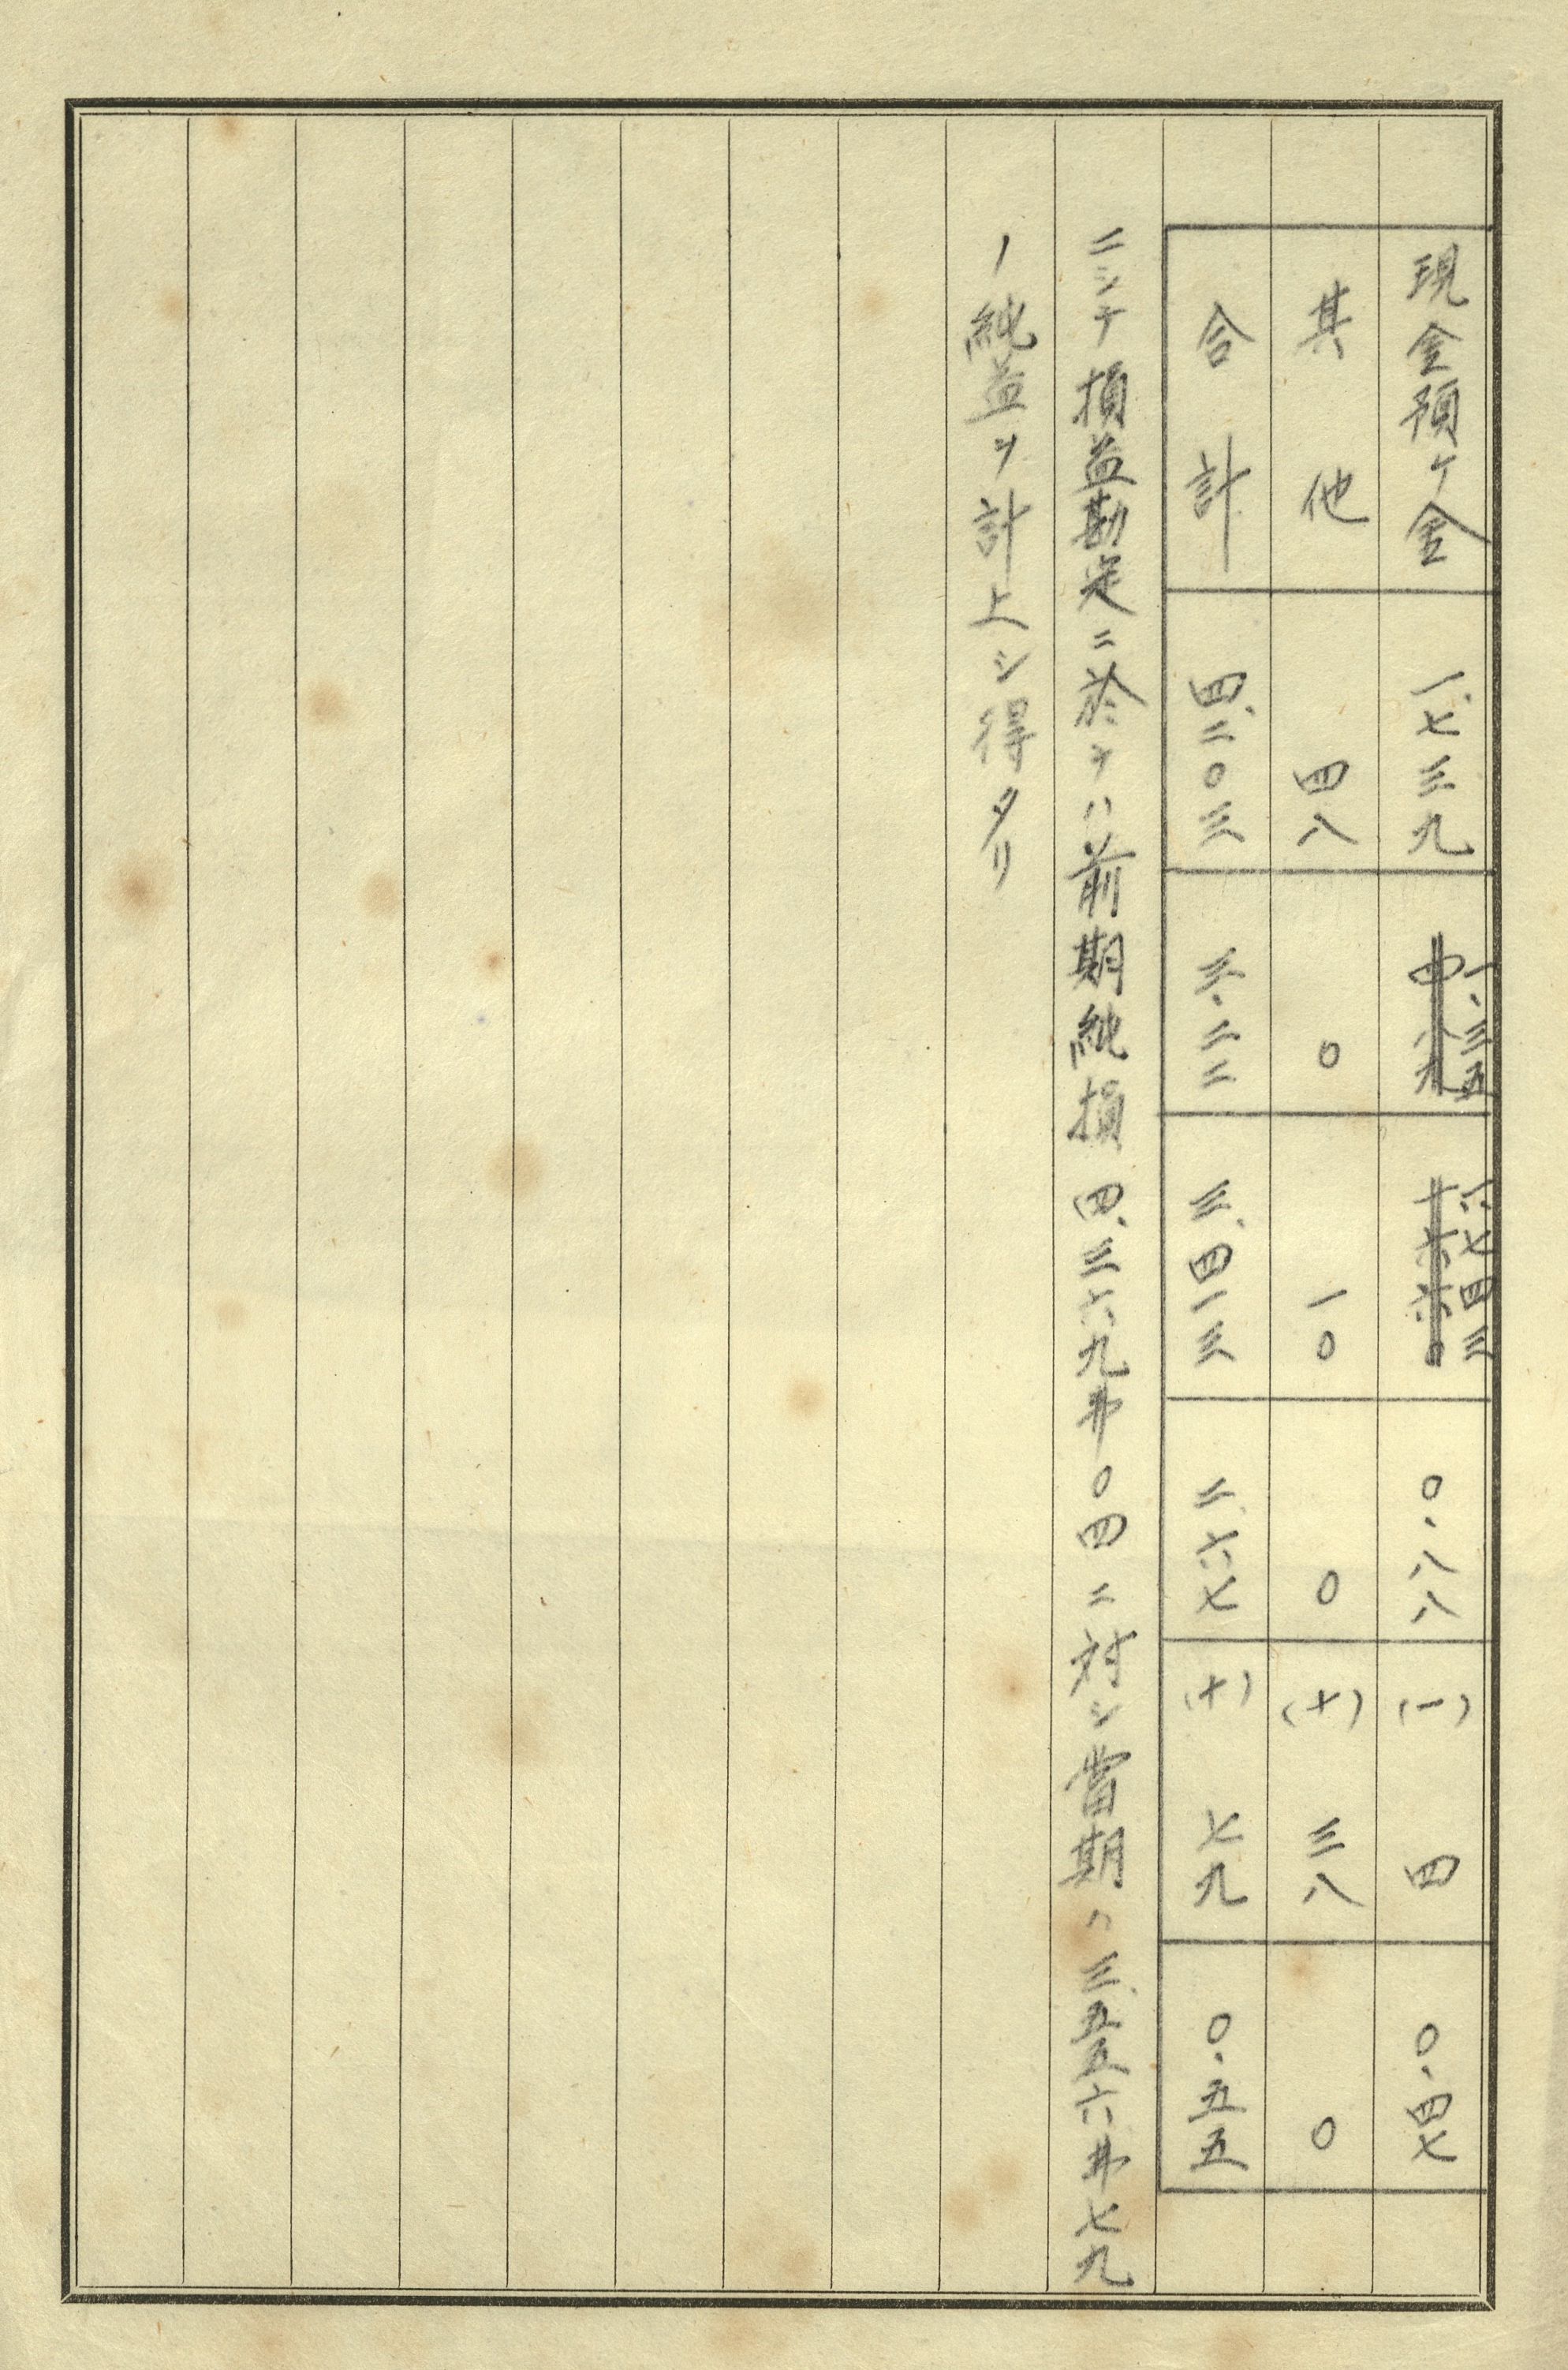 現金預ケ金 一、七三九 一、三五 一、七四三 〇、八八 (一) 四 〇、四七
其他 四八 〇 一〇 〇 (十) 三八 〇
合計 四、二〇三 三、二二 三、四一三 二、六七 (十) 七九 〇、五五
ニシテ損益勘定ニ於テハ前期純損四、三六九弗〇四ニ対シ當期ハ三、五五六弗七九
ノ純益ヲ計上シ得タリ